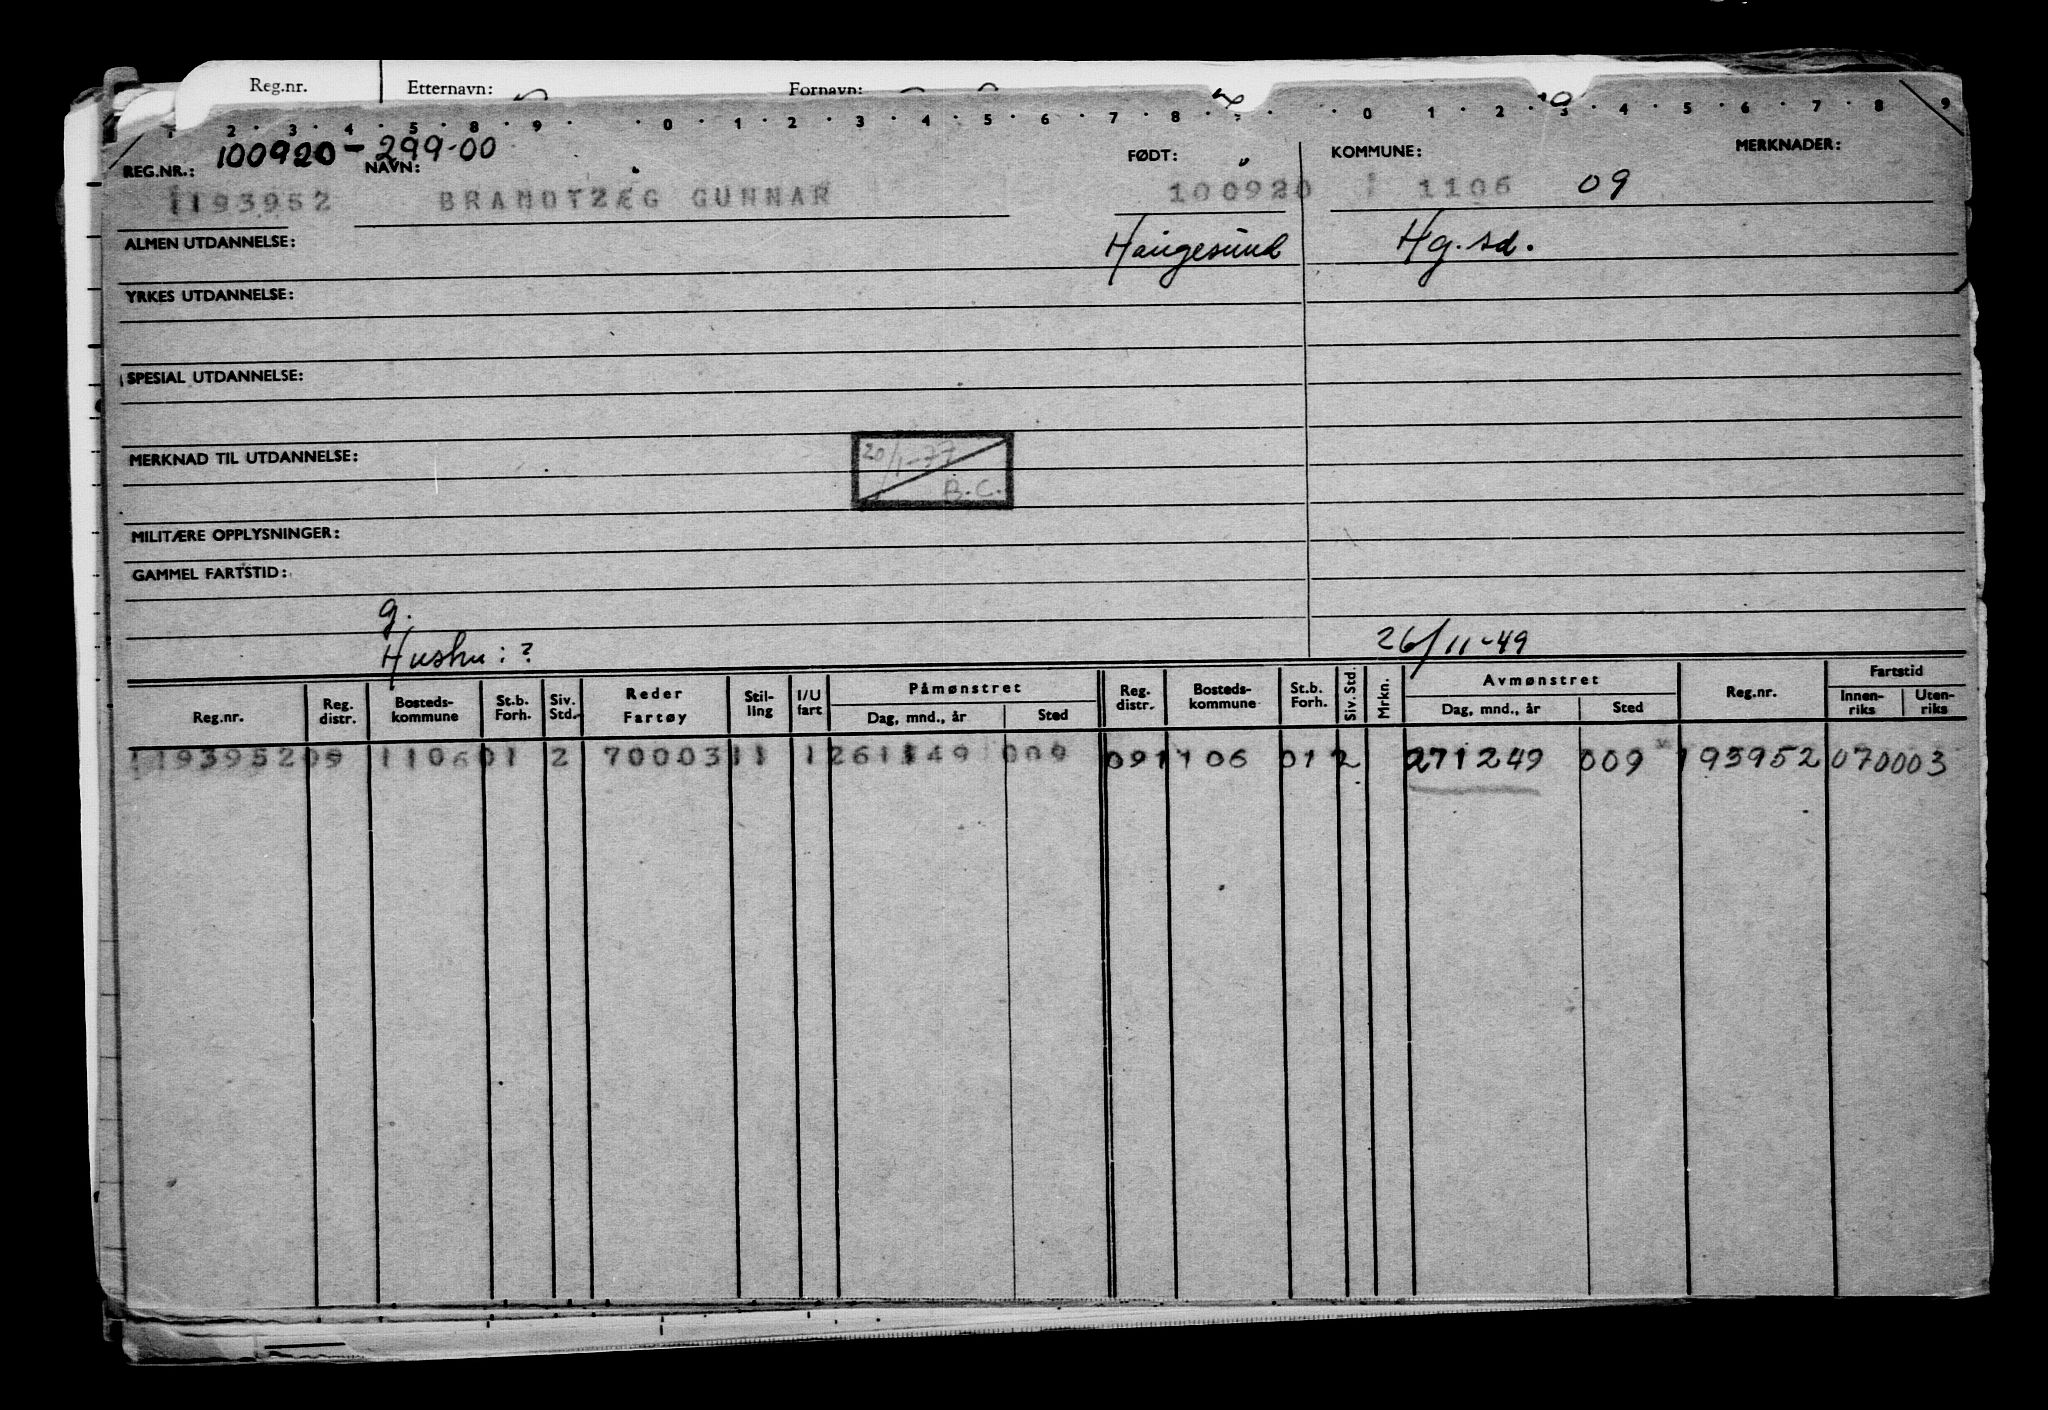 Reg.nr. Etternavn: Fornavn:
1 2 · 3 · 4 · 5 · 8 · 9 · · 0 · 1 · 2 · 3 · 4 · 5 · 6 · 7 · 8 · · · 0 · 1 · 2 · 3 · 4 · 5 · 6 · 7 · 8 · 9
100920-299-00
REG.NR.: NAVN: FØDT: KOMMUNE: MERKNADER:
1193952 BRANDTZÆG GUNNAR 100920 1 1106 09
ALMEN UTDANNELSE: Haugesund Hg.sd.
YRKES UTDANNELSE:
SPESIAL UTDANNELSE:
20/1-77
MERKNAD TIL UTDANNELSE:
B.C.
MILITÆRE OPPLYSNINGER:
GAMMEL FARTSTID:
g.
Hushu: ? 26/11-49
Reg.nr. Reg. distr. Bosteds- kommune St.b. Forh. Siv. Std. Reder Fartøy Stil- ling I/U fart Påmønstret Dag, mnd., år Sted Reg. distr. Bosteds- kommune St.b. Forh. Siv. Std. Mrkn. Avmønstret Dag, mnd., år Sted Reg.nr. Fartstid Innen- riks Uten- riks
1193952 09 1106 01 2 70003 11 1 261149 009 09 1106 01 2 271249 009 193952 070003